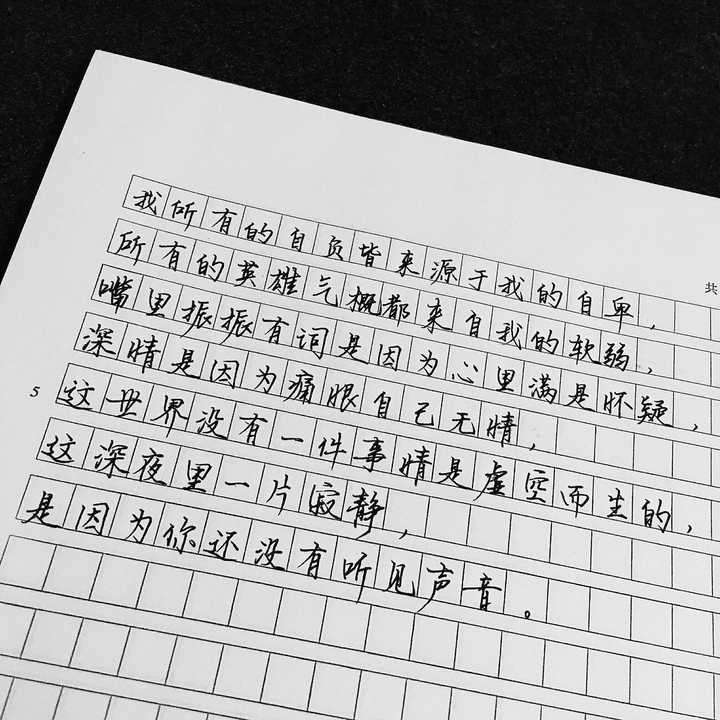 我所有的自负皆来源于我的自卑，
所有的英雄气概都来自我的软弱，
嘴里振振有词是因为心里满是怀疑，
深情是因为痛恨自己无情，
这世界没有一件事情是虚空而生的，
这深夜里一片寂静，
是因为你还没有听见声音。
5
共